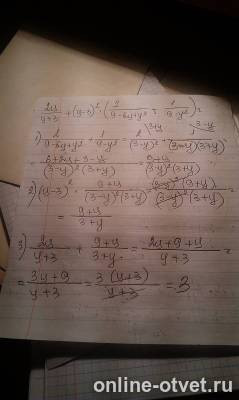 2y/(y+3) + (y-3)² · (2/(9-6y+y²) + 1/(9-y²)) =
1) 2/(9-6y+y²) + 1/(9-y²) = 2/(3-y)² + 1/((3-y)(3+y)) =
= (6+2y+3-y)/((3-y)²(3+y)) = (9+y)/((3-y)²(3+y))
2) (y-3)² · (9+y)/((3-y)²(3+y)) = ((3-y)²(9+y))/((3-y)²(3+y)) =
= (9+y)/(3+y)
3) 2y/(y+3) + (9+y)/(3+y) = (2y+9+y)/(y+3) =
= (3y+9)/(y+3) = 3(y+3)/(y+3) = 3
online-otvet.ru